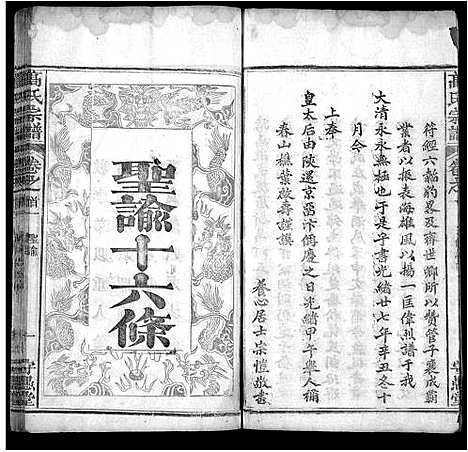 萬氏宗譜
卷之首
守愚堂
符經六韜約畧及齊世鄉所以贊管子襄成霸
業者以振表海雄風以揚一匡偉烈譜于我
大清永永無畺于是乎書光緒廿七年辛丑冬十
月念
上奉
皇太后由陝還京畱汴侚慶之日光緒甲午舉人稱
春山樵葉啟壽謹撰
養心居士宗愷敬書
聖諭十六條
萬氏宗譜
卷之首
聖諭
一
守愚堂